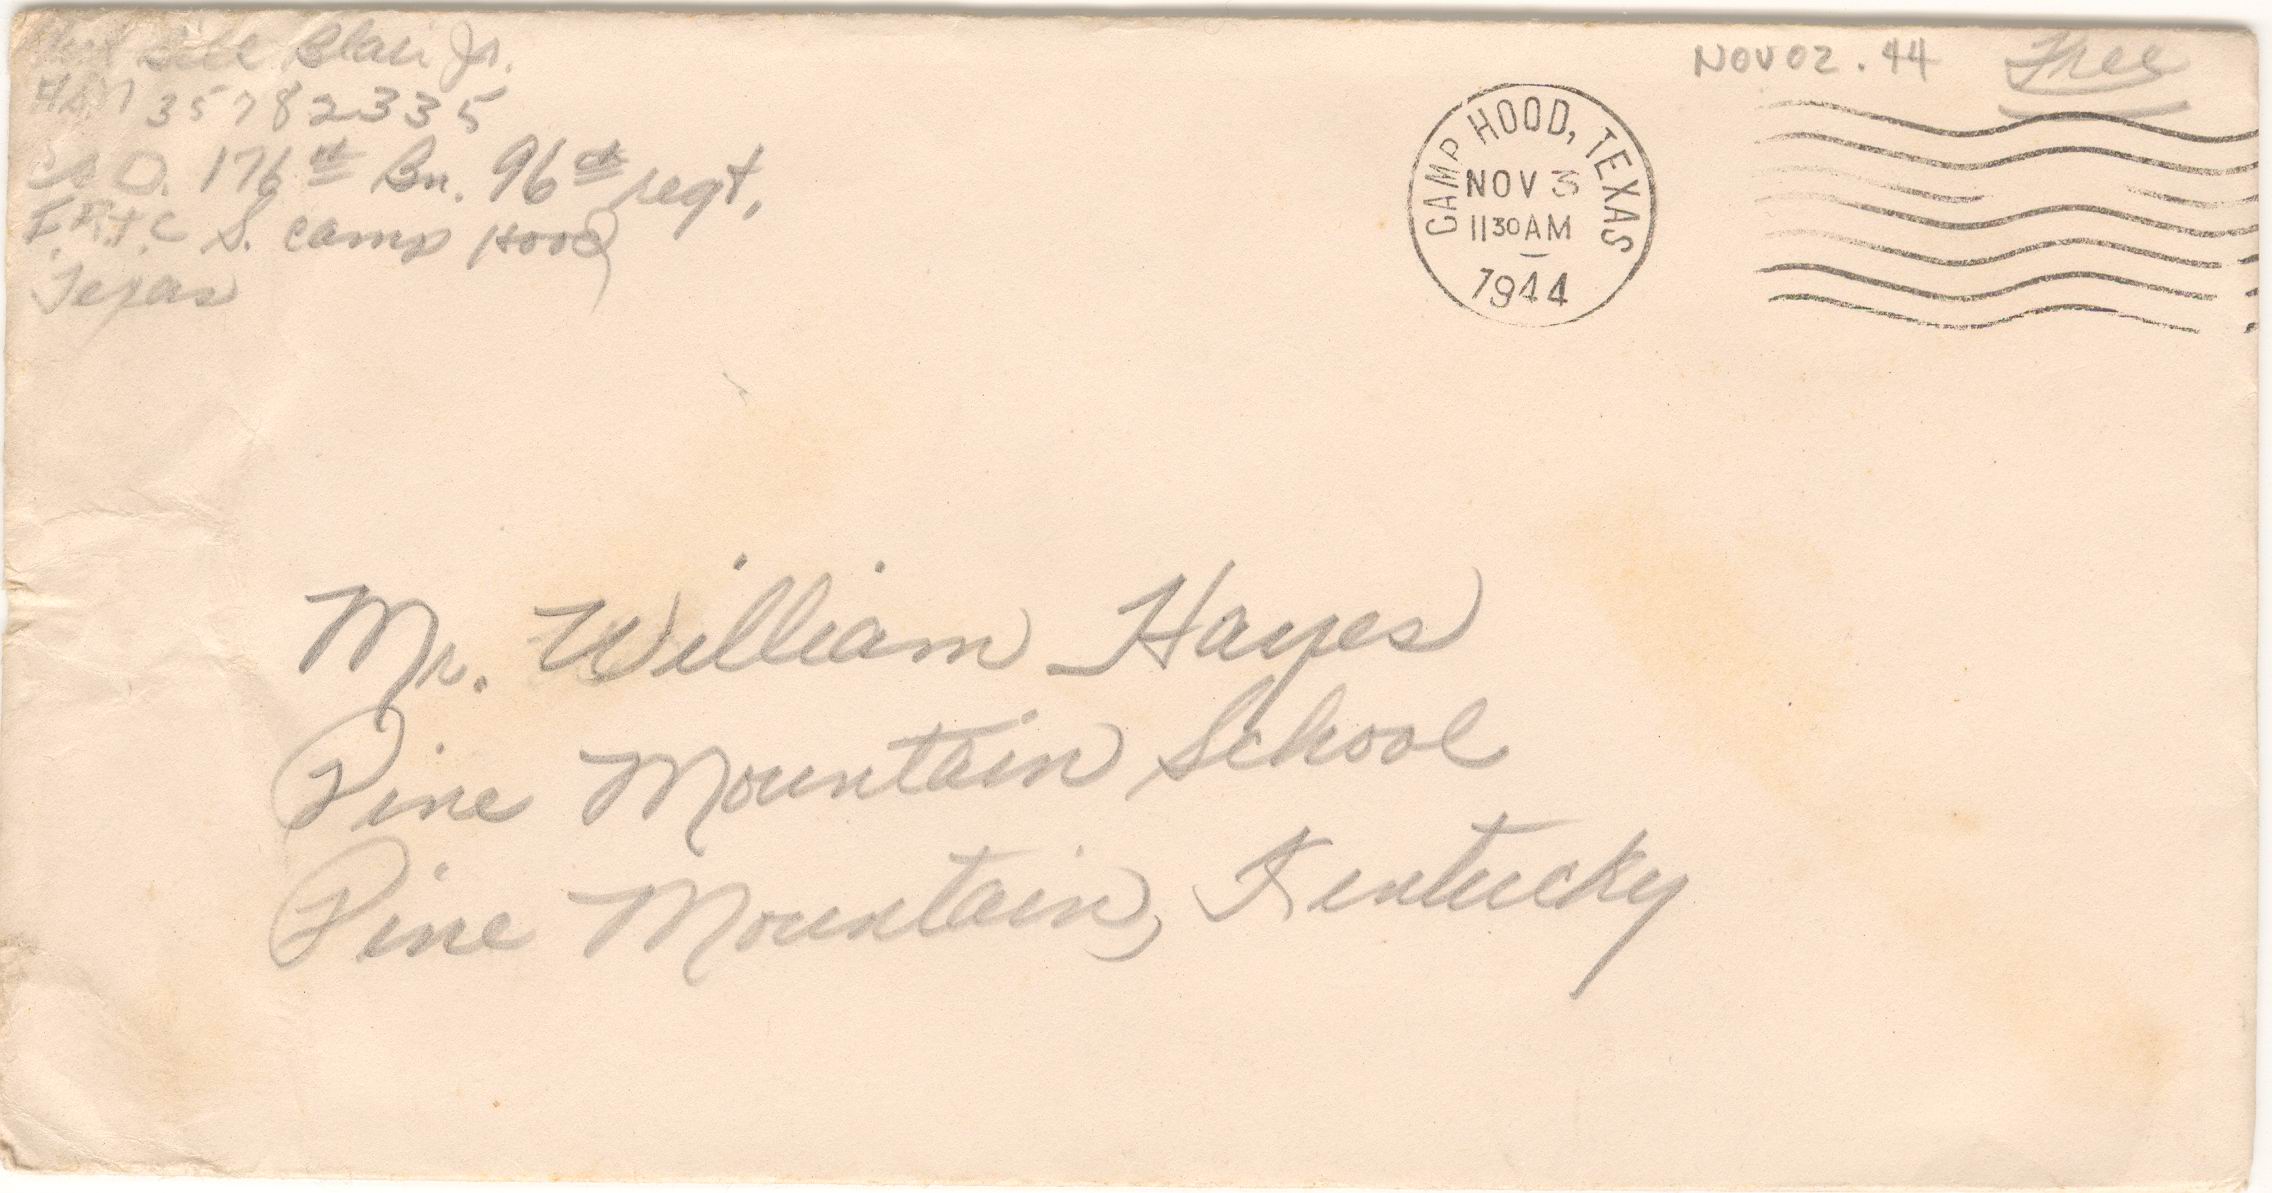 Bill Blair Jr.
35782335
Co D. 176th Bn. 96th regt,
I.R.T.C S. Camp Hood
Texas
NOV 02 . 44
Free
CAMP HOOD, TEXAS
NOV 3
11 30 AM
1944
Mr. William Hayes
Pine Mountain School
Pine Mountain, Kentucky